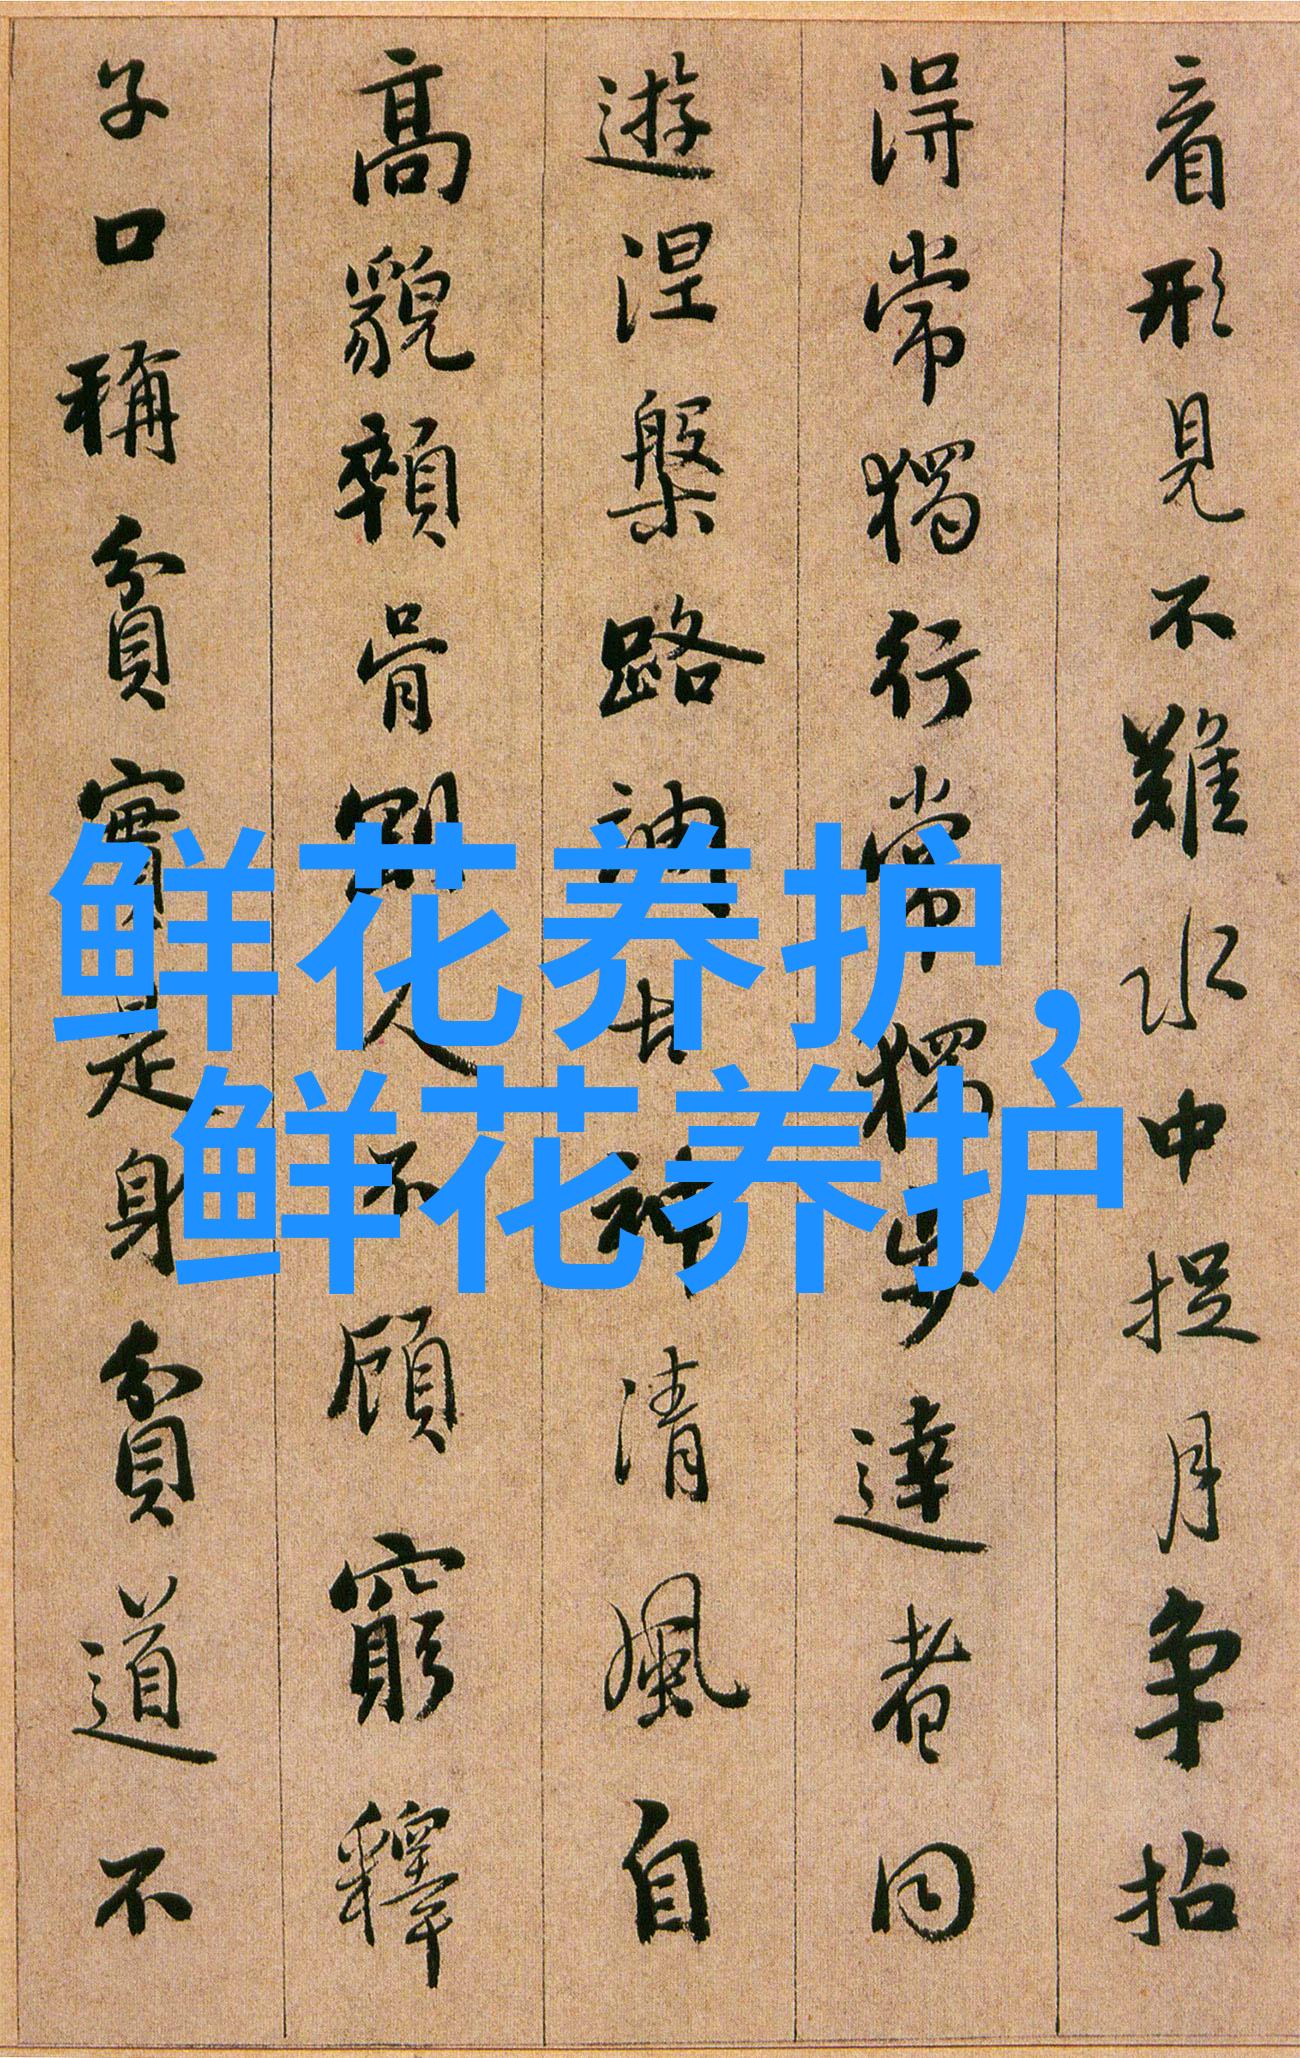 看形見不難水中捉月爭拈
得常獨行常獨步達者同
遊涅槃路調古神清風自
高貌顇骨剛人不顧窮釋
子口稱貧實是身貧道不
鲜花养护，
鲜花养护